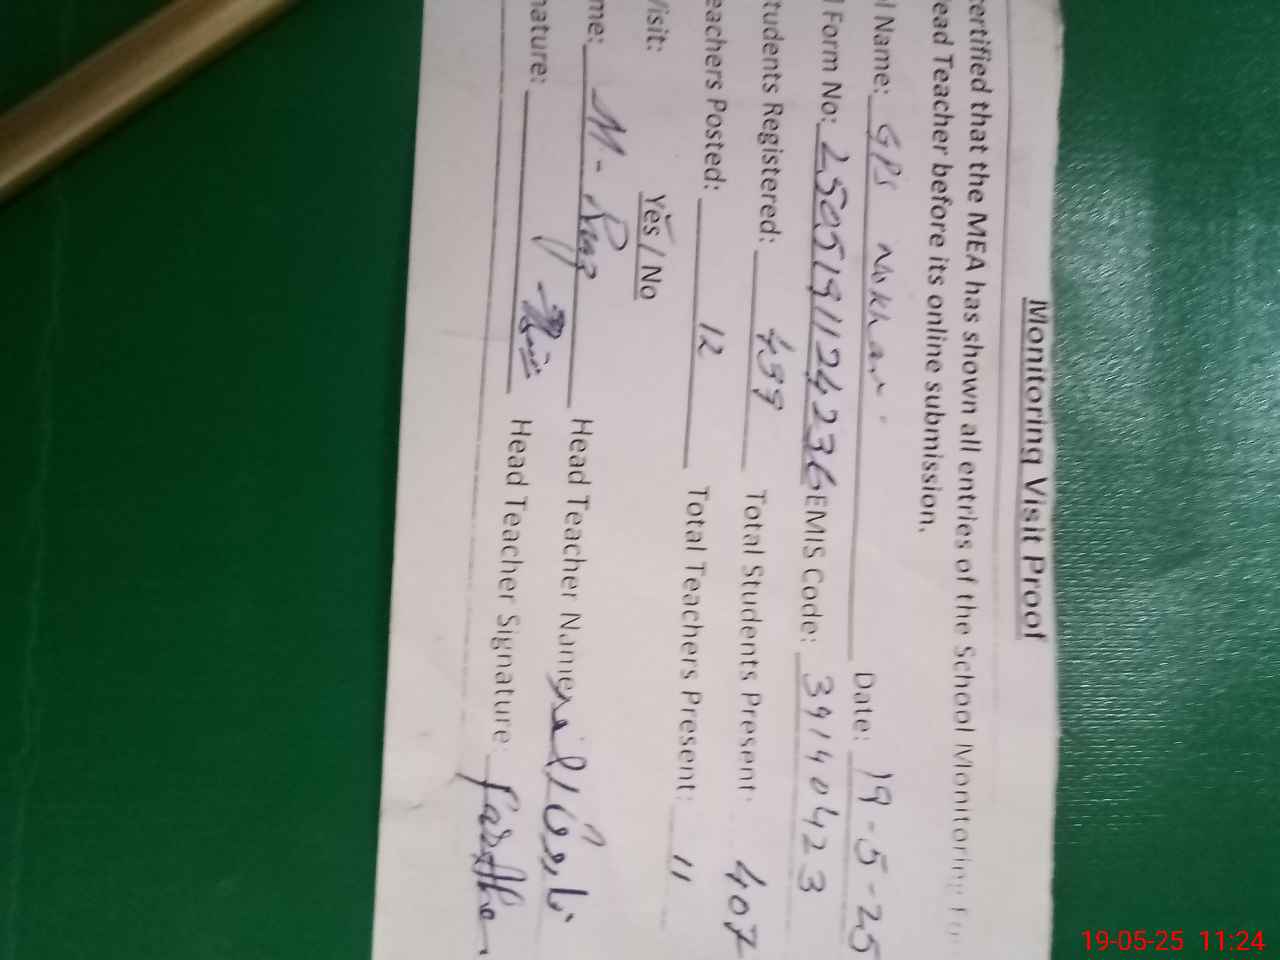 Monitoring Visit Proof
certified that the MEA has shown all entries of the School Monitoring For
ead Teacher before its online submission.
l Name: GPS Nokhar Date: 19-5-25
l Form No: 2505191124236 EMIS Code: 39140423
tudents Registered: 499 Total Students Present: 407
eachers Posted: 12 Total Teachers Present: 11
isit: Yes / No
me: M- Riaz Head Teacher Name
nature: Head Teacher Signature:
19-05-25 11:24